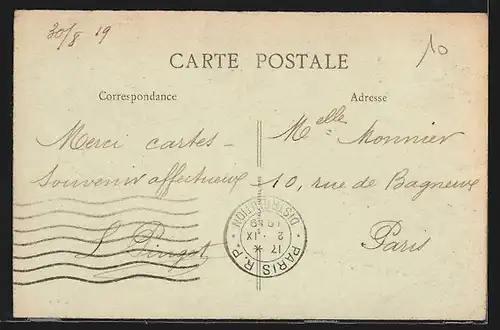 30/8 19
10
CARTE POSTALE
Correspondance
Adresse
Merci cartes -
souvenir affectueux
Melle Monnier
10, rue de Bagneux
Paris
PARIS R.P.
DISTRIBUTION
17
2 · IX